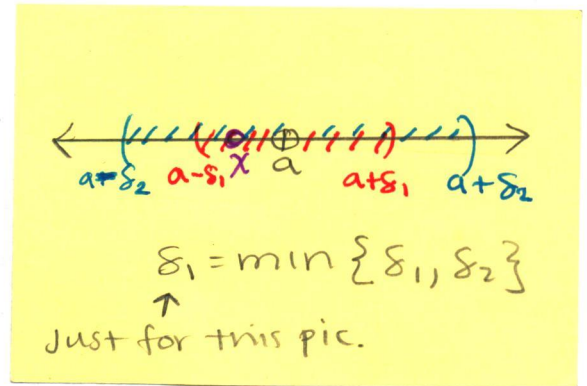 a-δ₂ a-δ₁ x a a+δ₁ a+δ₂
δ₁ = min {δ₁, δ₂}
↑
Just for this pic.